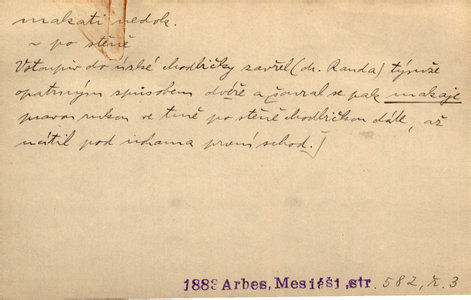 makati nedok.
~ po stěně
Vstoupiv do úzké chodbičky zavřel (dr. Randa) týmže
opatrným způsobem dvéře a šoural se pak makaje
pravou rukou ve tmě po stěně chodbičkou dále, až
ucítil pod nohama první schod.
1883 Arbes, Mesiáš I, str. 582, ř. 3